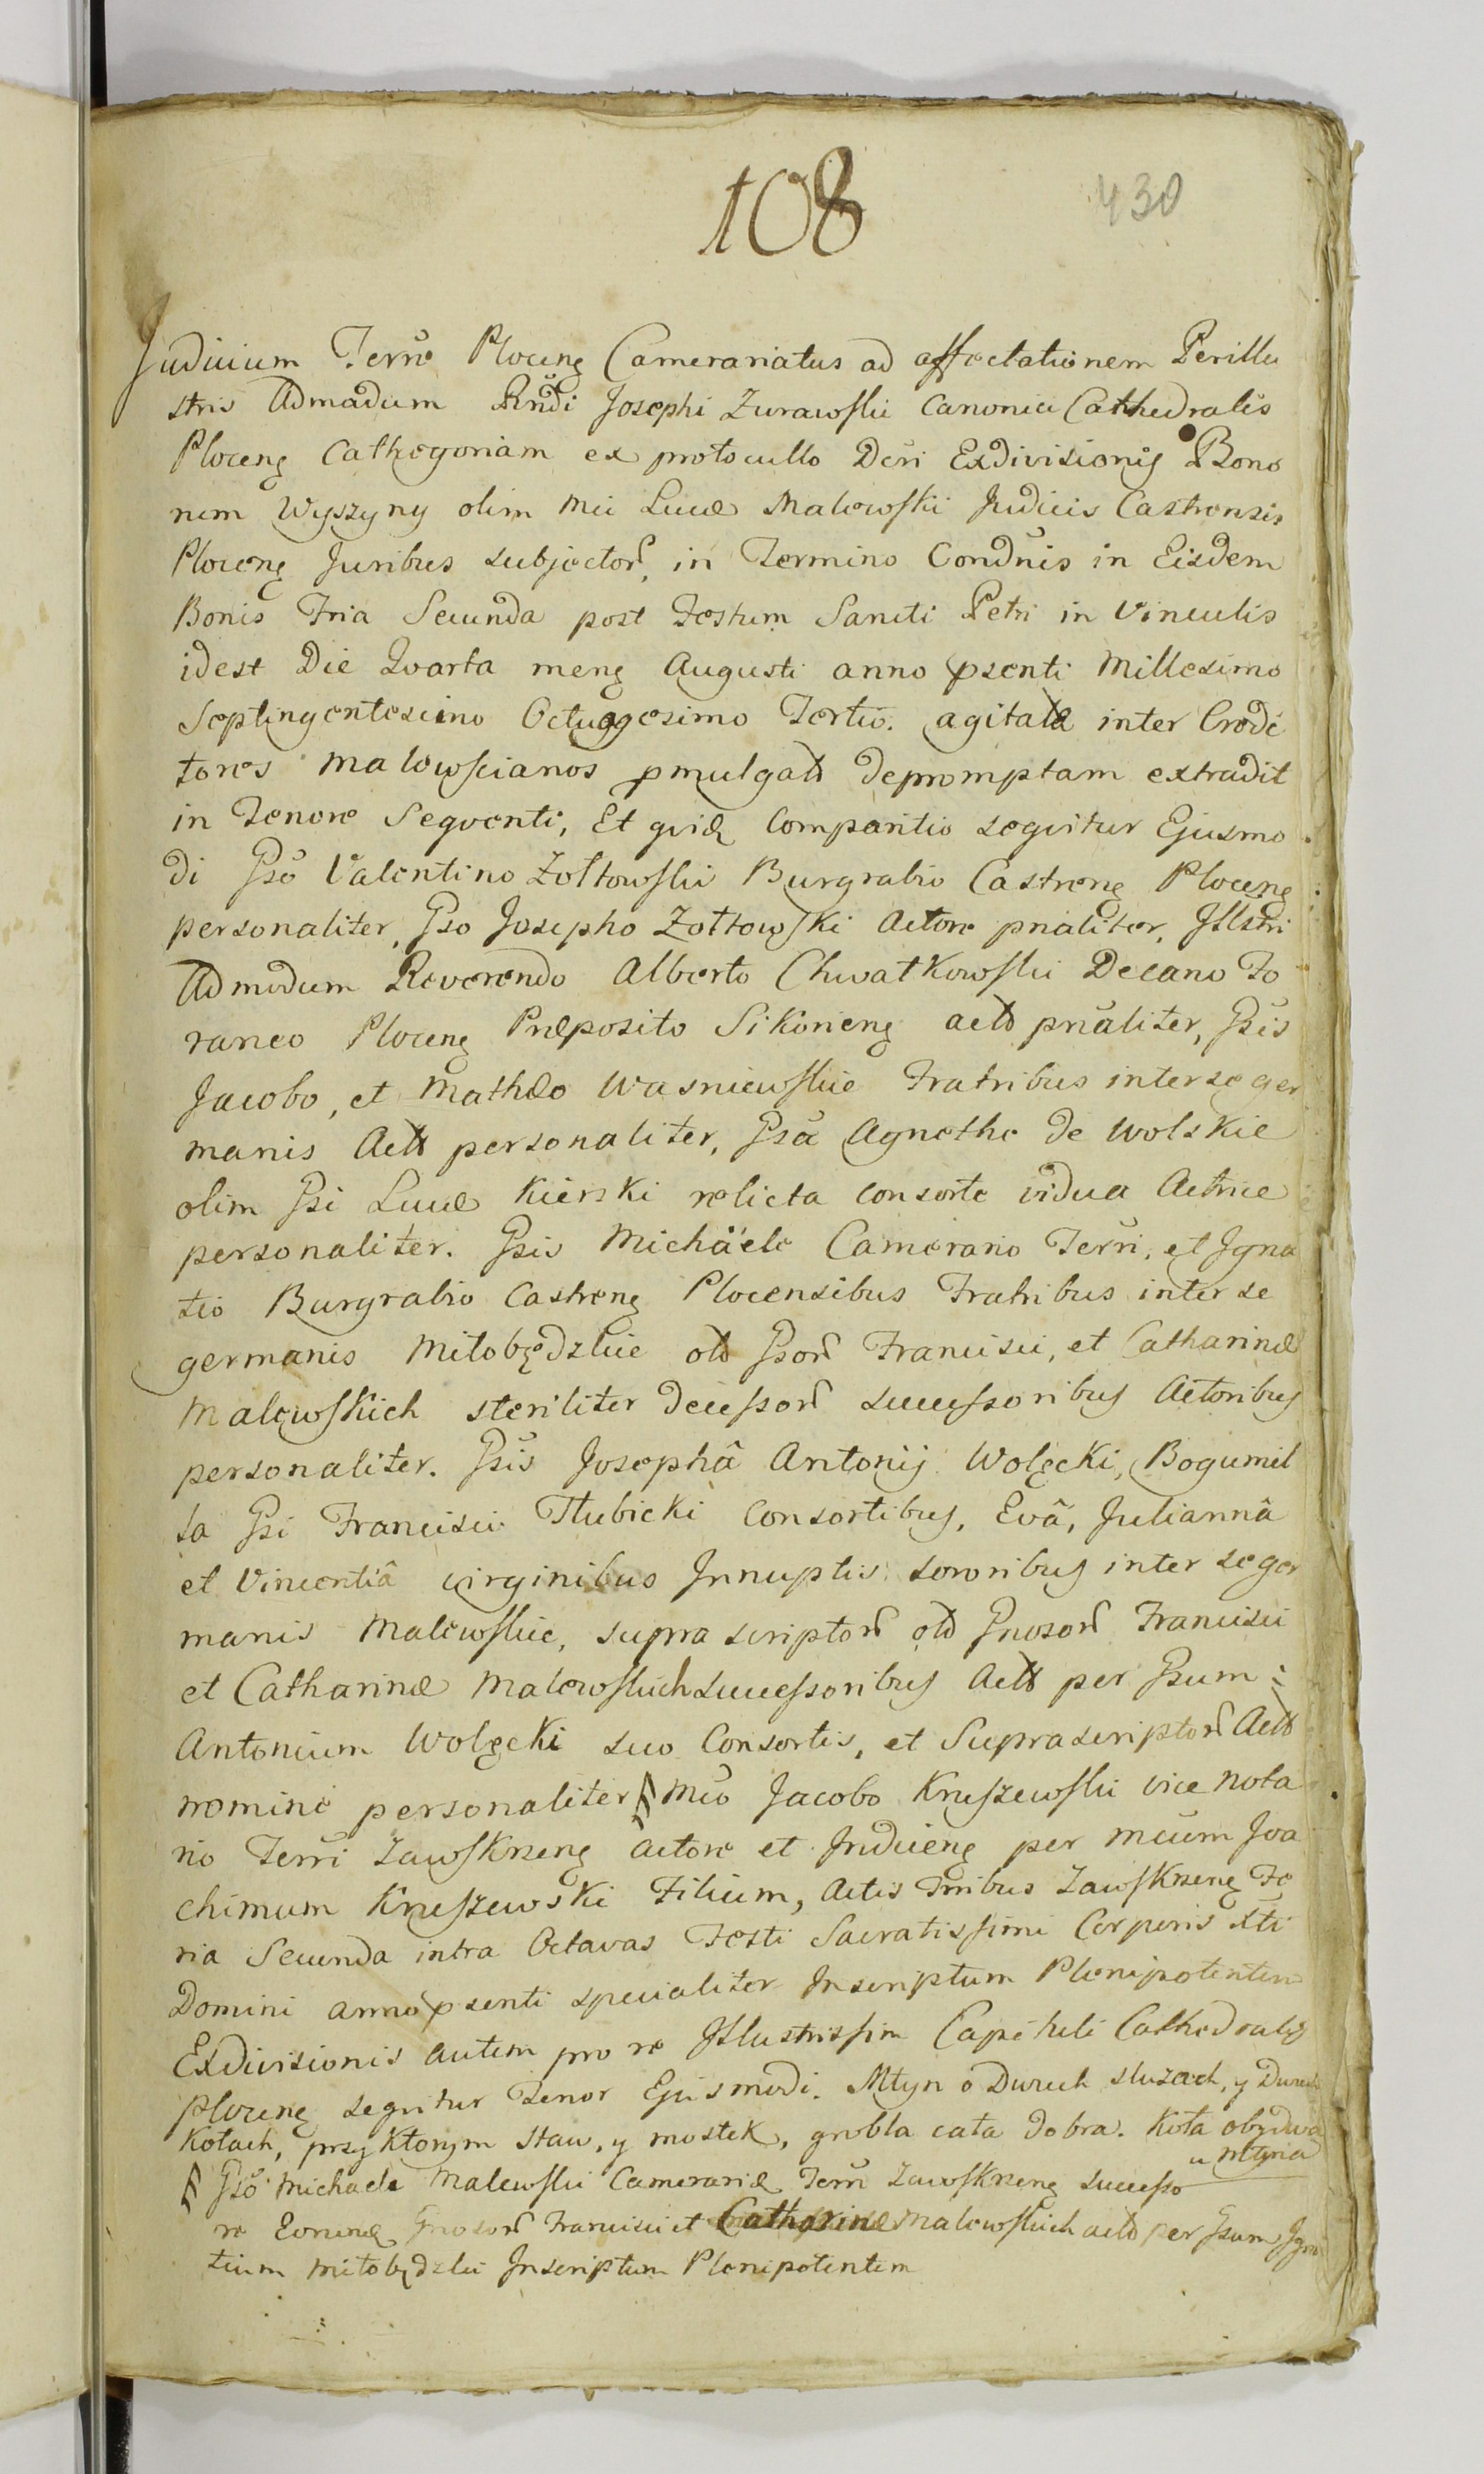 108
430
Judicium Terre Plocens Camerariatus ad affectationem Perillu
stris Admodum Rndi Josephi Zurawski Canonici Cathedralis
Plocens Cathegoriam ex protocullo Dcri Exdivisionis Bono
rum Wyszyny olim Mci Lucæ Malewski Judicis Castrensis
Plocens Juribus subjector, in Termino Condnis in Eisdem
Bonis Fria Secunda post Festum Sancti Petri in Vinculis
idest Die Qvarta mens Augusti anno psenti Millesimo
Septingentesimo Octuagesimo Tertio. agitatæ inter Credi
tores Malewscianos pmulgat depromptam extradit
in Tenore Seqventi, Et qvid Comparitio seqvitur Ejusmo
di Gso Valentino Zołtowski Burgrabio Castrens Plocens
personaliter, Gso Josepho Zołtowski Actore pnaliter, Jllstri
Admodum Reverendo Alberto Chwatkowski Decano Fo
raneo Plocens Præposito Sikoriens act pnaliter, Gsis
Jacobo, et Mathæo Wasniewskie Fratribus inter se ger
manis Actt personaliter, Gsa Agnethe de Wolskie
olim Gsi Lucæ Kierski relicta consorte vidua Actrice
personaliter. Gsis Michäele Camerario Terri, et Igna
tio Burgrabio Castrens Plocensibus Fratribus inter se
germanis Miłobędzkie olt Gsor Francisci, et Catharinæ
Malewskich steriliter decessor successoribus Actoribus
personaliter. Gsis Josephâ Antonij Wolęcki, Bogumił
ła Gsi Francisci Tłubicki Consortibus, Evâ, Juliannâ
et Vincentiâ virginibus Innuptis sororibus inter se ger
manis Malewskie, supra scriptor olt Gnosor Francisci
et Catharinæ Malewskich Successoribus Actt per Gsum
Antonium Wolęcki suo Consortis, et Suprascriptor Actt
nomine personaliter Mco Jacobo Kruszewski vice Nota
rio Terri Zawskrzens Actore et Indiciens per Mcum Joa
chimum Kruszewski Filium, Actis Trribus Zawskrzens Fe
ria Secunda intra Octavas Festi Sacratissimi Corporis Xti
Domini anno psenti specialiter Inscriptum Plenipotentem
Exdivisionis autem pro re Jllustrissim Capituli Cathedralis
Plocens seqvitur Tenor Ejusmodi. Młyn o Dwuch słuzach, y Dwuch
Kołach, przy Ktorym staw, y mostek, grobla cała dobra. Koła obydwa
u Młyna
Gso Michaele Malewski Camerario Terri Zawskrzens Successo
re Gnosor Francisci et Catharinæ Malewskich act per Gsum Igna
tium Miłobędzki Inscriptum Plenipotentem